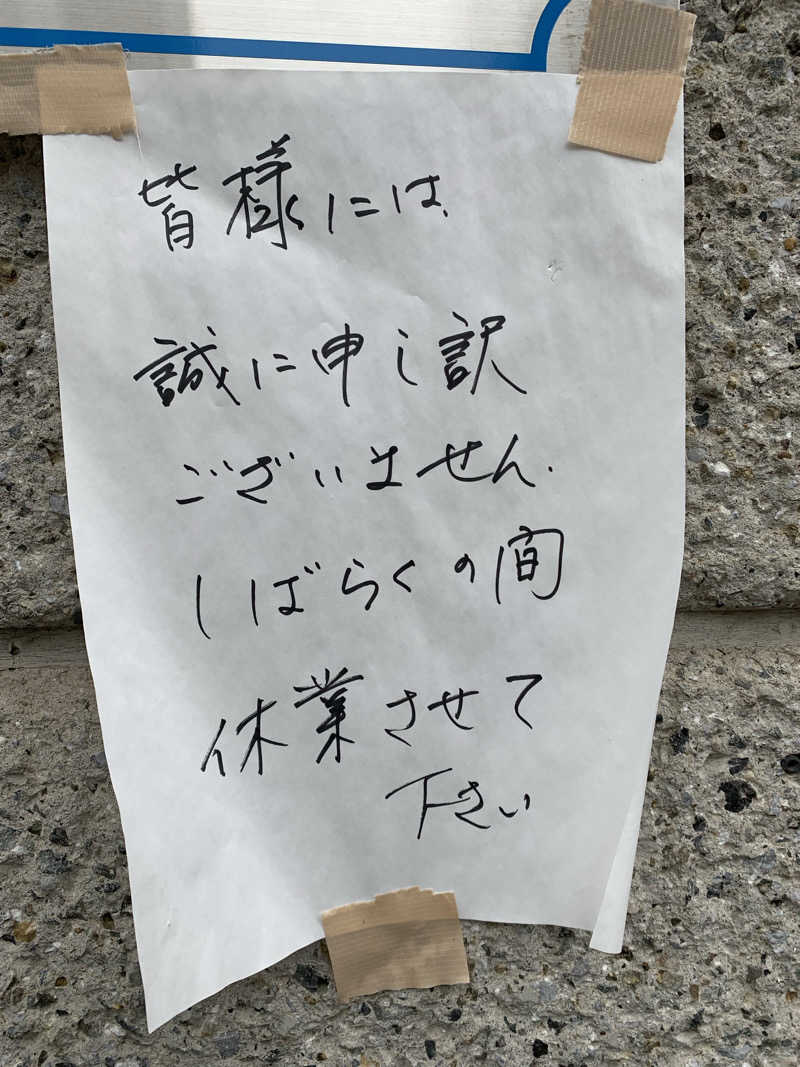 皆様には、
誠に申し訳
ございません.
しばらくの間
休業させて
下さい